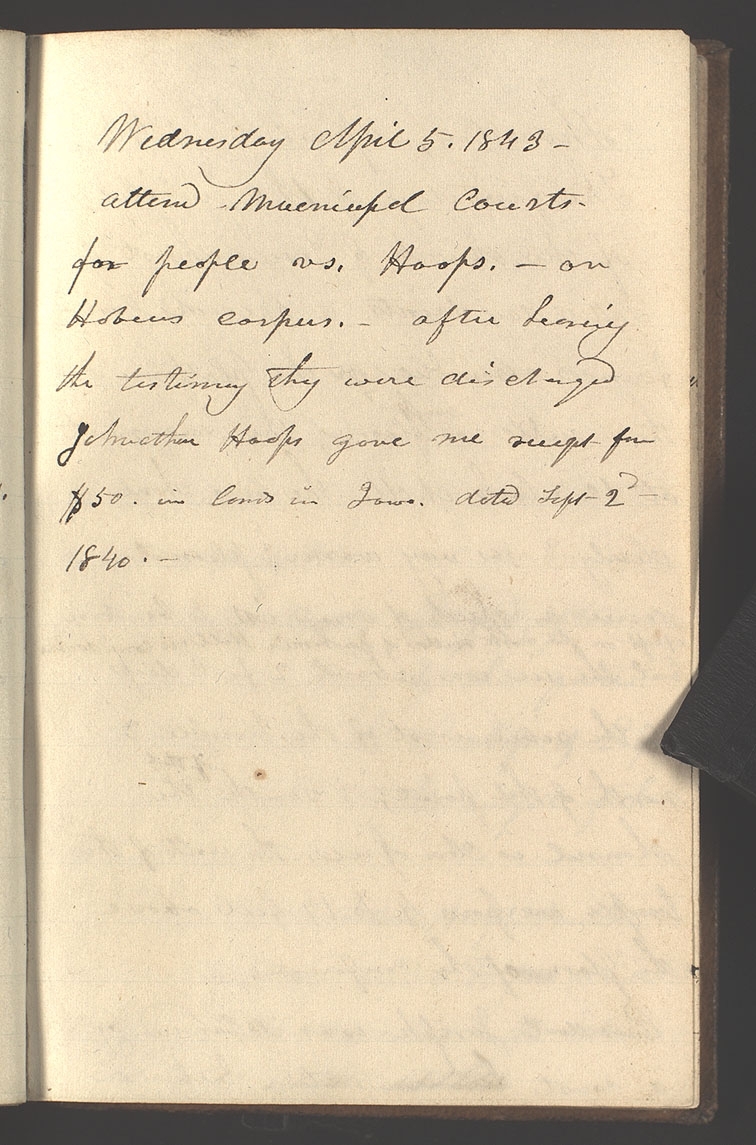 Wednesday April 5. 1843 —
attend Municipal Courts.
for people vs. Hoops. — on
Habeus corpus. — after hearing
the testimny they were discharged
Johnathan Hoops gave me recept for
$50. in lands in Iowa. dated Sept 2d —
1840. —